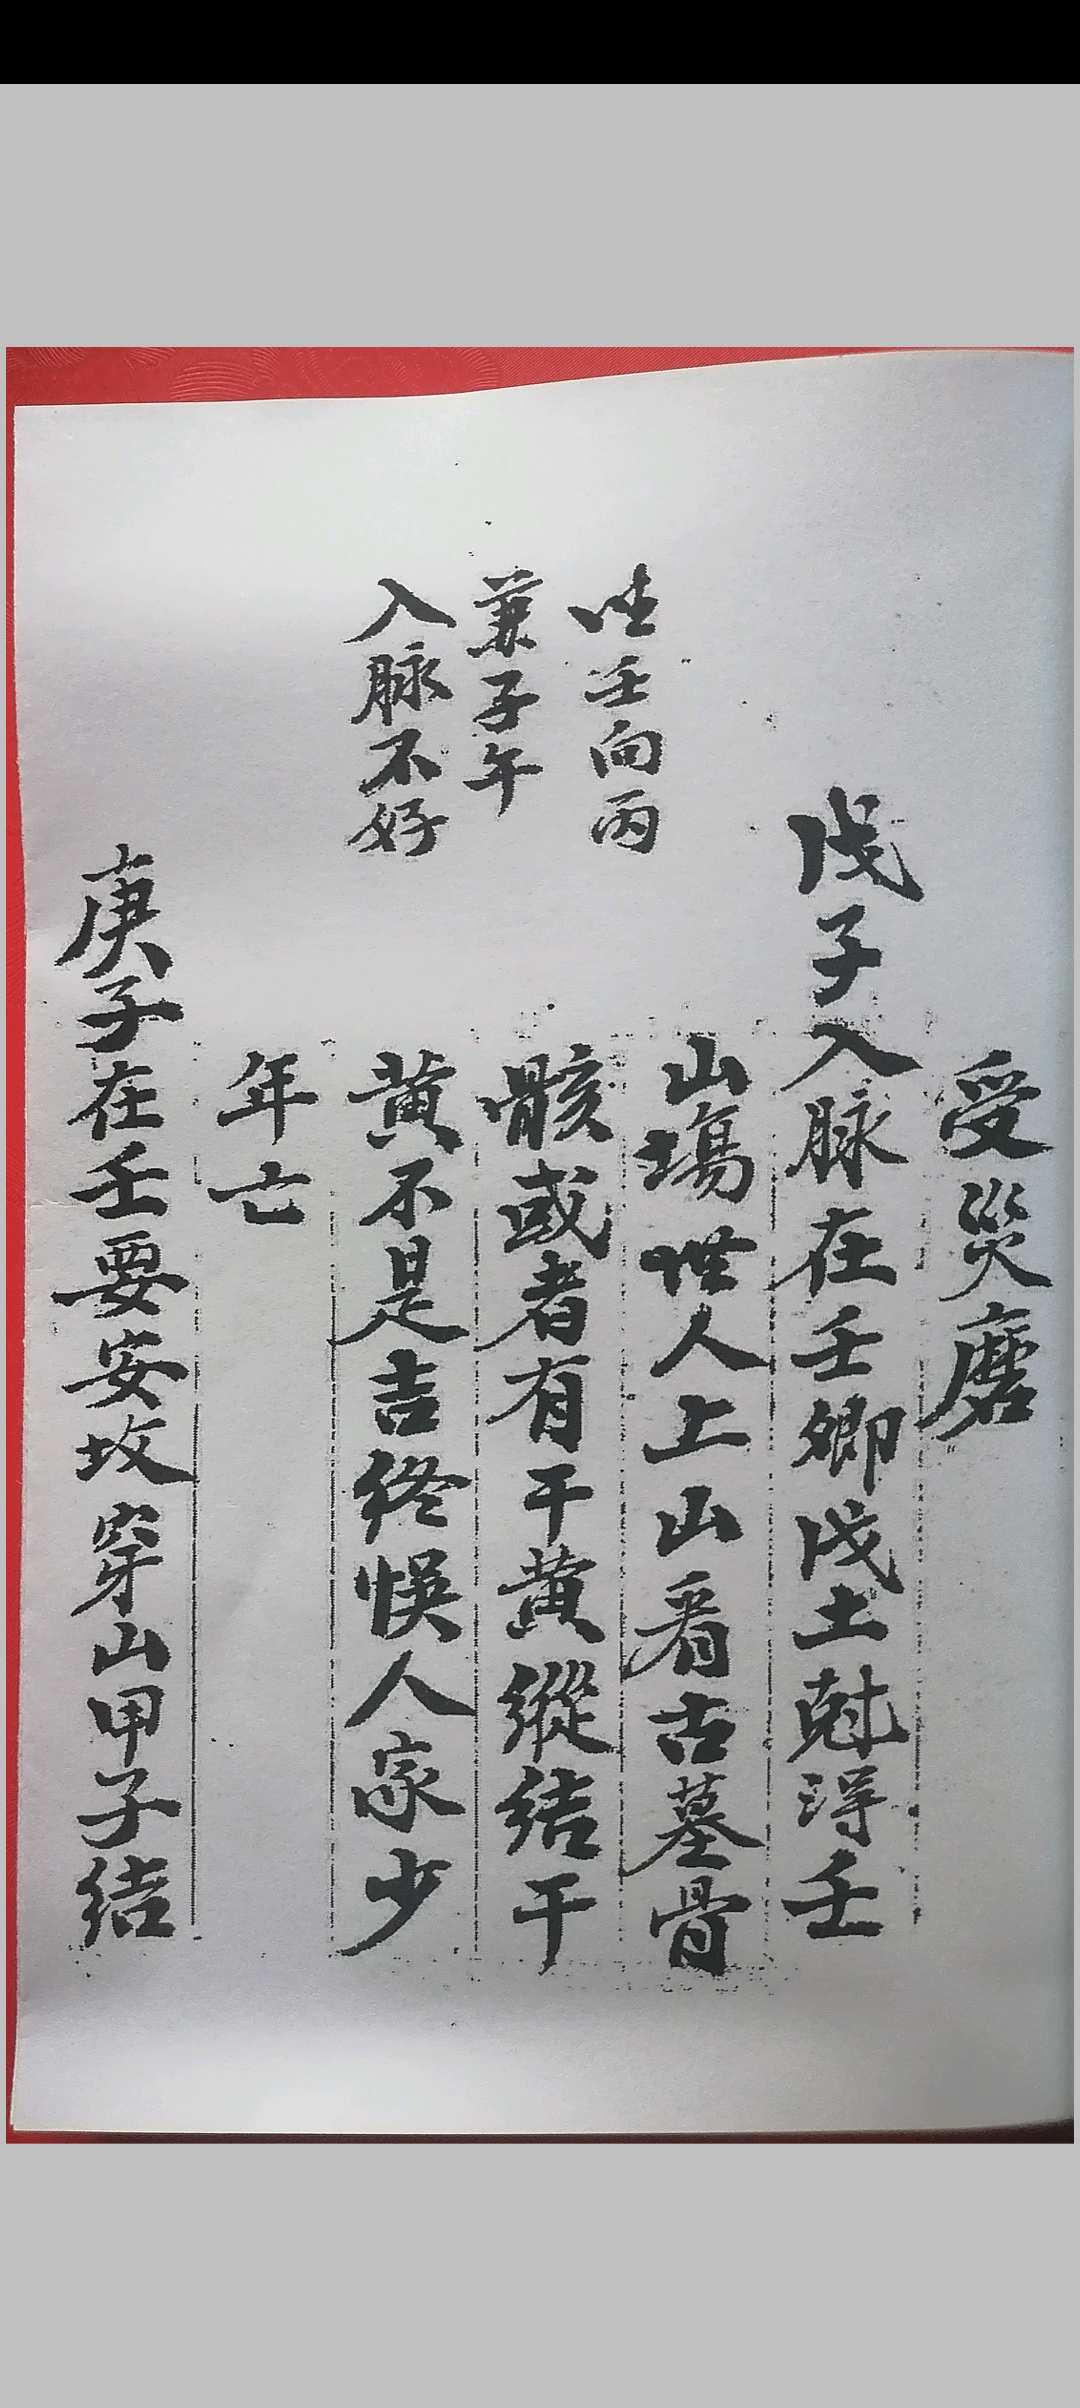 受災磨
戊子入脉在壬鄉戊土尅得壬
山塲世人上山看古墓骨
骸或者有干黄縱結干
黄不是吉終悞人家少
年亡
庚子在壬要安坟穿山甲子结
坐壬向丙
兼子午
入脉不好